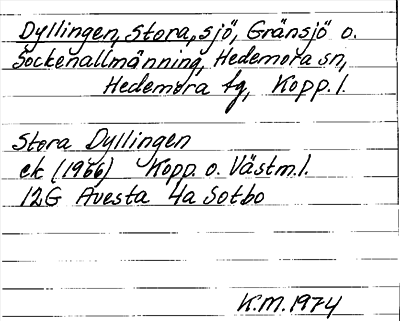 Dyllingen, Stora, sjö, Gränsjö o.
Sockenallmänning, Hedemora sn,
Hedemora tg, Kopp. l.
Stora Dyllingen
ek (1966) Kopp. o. Västm. l.
12G Avesta 4a Sotbo
K.M. 1974